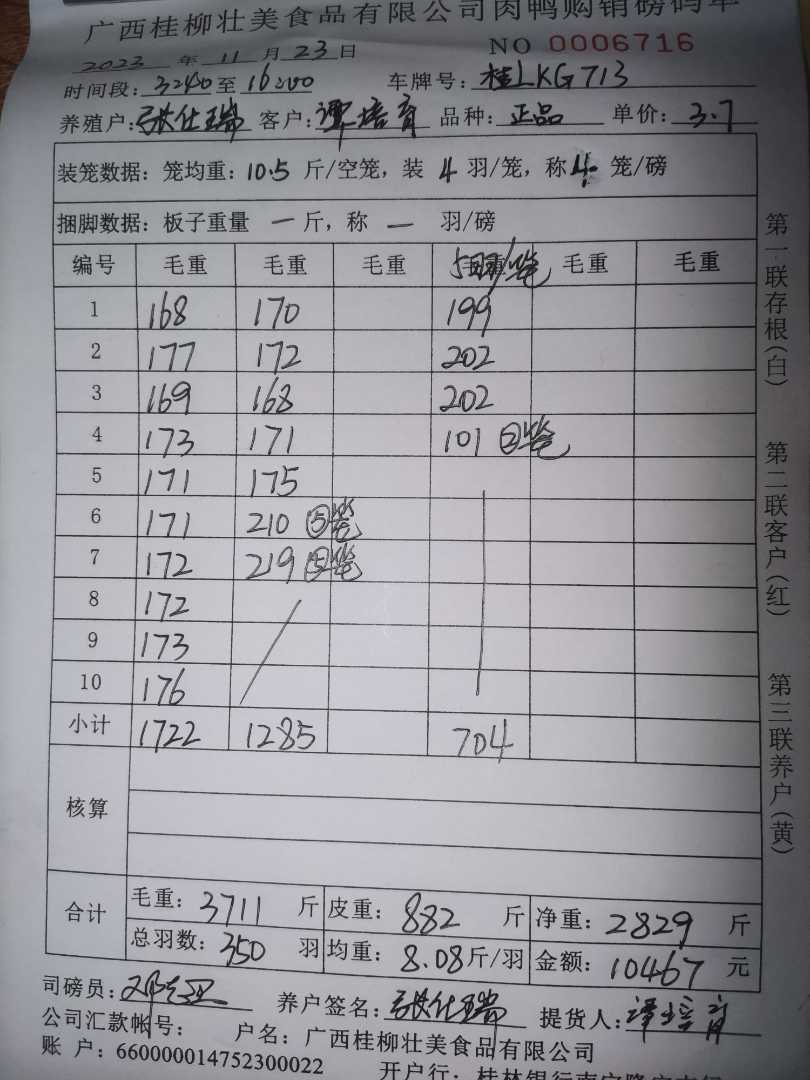 广西桂柳壮美食品有限公司肉鸭购销磅码单
2023 年 11 月 23 日 NO 0006716
时间段: 3:40 至 16:00 车牌号: 桂LKG713
养殖户: 张仕瑞 客户: 谭培育 品种: 正品 单价: 3.7
装笼数据: 笼均重: 10.5 斤/空笼, 装 4 羽/笼, 称 4 笼/磅
捆脚数据: 板子重量 一 斤, 称 一 羽/磅
编号 毛重 毛重 毛重 毛重 5羽/笼 毛重 毛重
1 168 170 199
2 177 172 202
3 169 168 202
4 173 171 101 ②笼
5 171 175
6 171 210 ⑤笼
7 172 219 ⑤笼
8 172
9 173
10 176
小计 1722 1285 704
核算
合计 毛重: 3711 斤 皮重: 882 斤 净重: 2829 斤
总羽数: 350 羽 均重: 8.08 斤/羽 金额: 10467 元
司磅员: 养户签名: 张仕瑞 提货人: 谭培育
公司汇款帐号: 户名: 广西桂柳壮美食品有限公司
账 户: 660000014752300022 开户行: 桂林银行南宁隆安支行
第一联存根(白)
第二联客户(红)
第三联养户(黄)